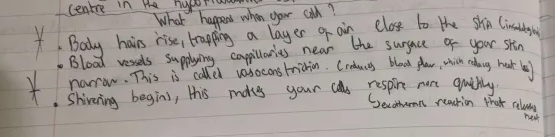 centre in the hypothalamus
What happens when your cold?
• Body hairs rise, trapping a layer of air close to the skin (insulating
• Blood vessels supplying cappilaries near the surface of your skin
narrow. This is called vasoconstriction. (reduces blood flow, which reducing heat loss)
• Shivering begins, this makes your cells respire more quickly.
exothermic reaction that releases
heat